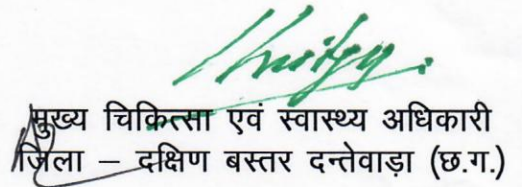 मुख्य चिकित्सा एवं स्वास्थ्य अधिकारी
जिला – दक्षिण बस्तर दन्तेवाड़ा (छ.ग.)